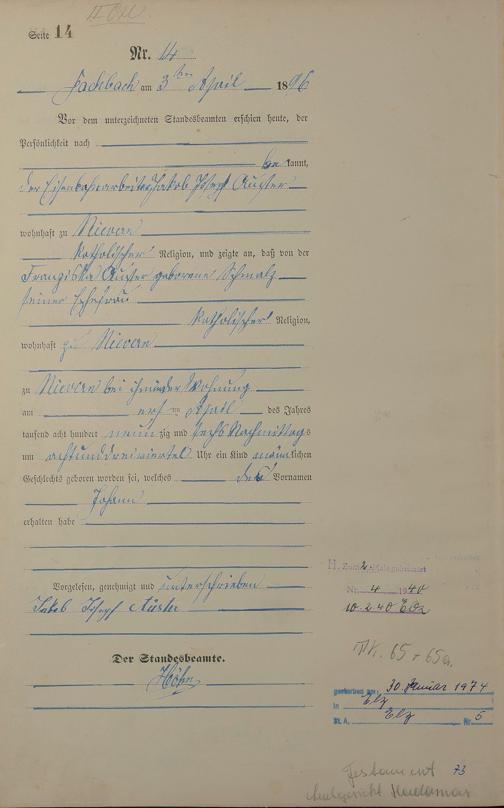 Seite 14
Nr. 14
Fachbach am 3ten April 1896
Vor dem unterzeichneten Standesbeamten erschien heute, der
Persönlichkeit nach
be kannt,
der Eisenbahnarbeiter Jakob Josef
wohnhaft zu Nievern
katholischer Religion, und zeigte an, daß von der
Franziska geborene Schmalz
seiner Ehefrau
katholischer Religion,
wohnhaft zu Nievern
zu Nievern bei ihm in der Wohnung
am ersten April des Jahres
tausend acht hundert neun zig und sechs Nachmittags
um achtunddreiviertel Uhr ein Kind männlichen
Geschlechts geboren worden sei, welches den Vornamen
Johann
erhalten habe
Vorgelesen, genehmigt und unterschrieben
Jakob Joseph
Der Standesbeamte.
Höhn
H. Zum 2.
Nr. 4 1940
10.2.40
TK. 65 + 65a.
gestorben am: 30. Januar 1974
in Elz
St. A. Elz Nr. 5
Testament 73
Amtsgericht Hadamar